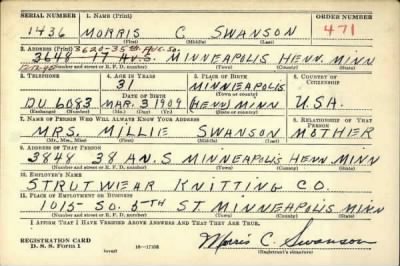 SERIAL NUMBER 1. NAME (Print) ORDER NUMBER
1436 MORRIS C SWANSON 471
(First) (Middle) (Last)
2. ADDRESS (Print) 3620-35th Ave. So.
3648 - 17 AV. S. MINNEAPOLIS HENN. MINN
(Number and street or R. F. D. number) (Town) (County) (State)
3. TELEPHONE 4. AGE IN YEARS 5. PLACE OF BIRTH 6. COUNTRY OF CITIZENSHIP
31 MINNEAPOLIS
DATE OF BIRTH (Town or county)
DU 6083 MAR. 3 1909 (HENN) MINN U.S.A.
(Exchange) (Number) (Mo.) (Day) (Yr.) (State or country)
7. NAME OF PERSON WHO WILL ALWAYS KNOW YOUR ADDRESS 8. RELATIONSHIP OF THAT PERSON
MRS. MILLIE SWANSON MOTHER
(Mr., Mrs., Miss) (First) (Middle) (Last)
9. ADDRESS OF THAT PERSON
3848 38 AV. S MINNEAPOLIS HENN MINN
(Number and street or R. F. D. number) (Town) (County) (State)
10. EMPLOYER'S NAME
STRUTWEAR KNITTING CO.
11. PLACE OF EMPLOYMENT OR BUSINESS
1015 - SO. 6TH ST. MINNEAPOLIS MINN
(Number and street or R. F. D. number) (Town) (County) (State)
I AFFIRM THAT I HAVE VERIFIED ABOVE ANSWERS AND THAT THEY ARE TRUE.
REGISTRATION CARD
D. S. S. Form 1 (over) 16—17105 Morris C. Swanson
(Registrant's signature)